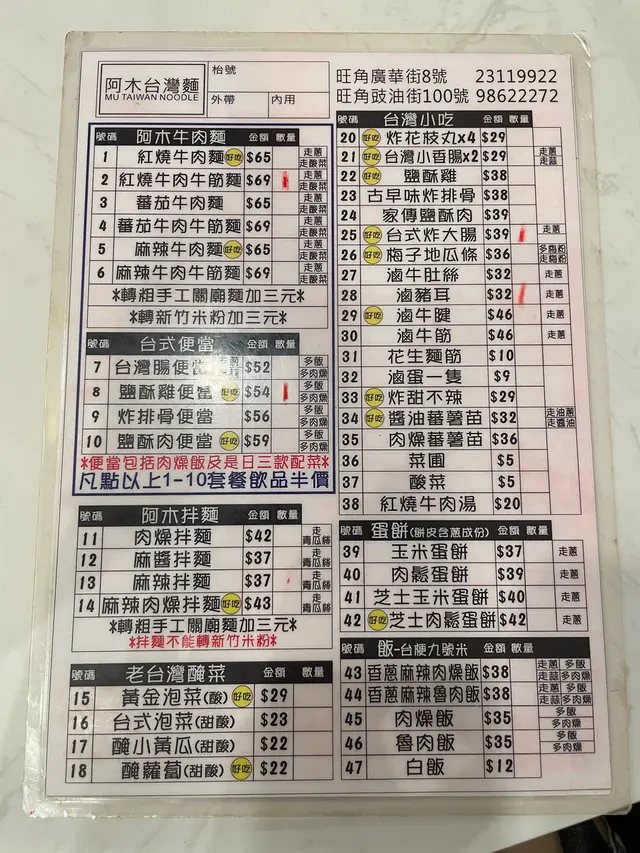 阿木台灣麵
MU TAIWAN NOODLE
枱號
外帶 內用
旺角廣華街8號 23119922
旺角豉油街100號 98622272
號碼 阿木牛肉麵 金額 數量
1 紅燒牛肉麵 好吃 $65 走蔥 走酸菜
2 紅燒牛肉牛筋麵 $69 走蔥 走酸菜
3 蕃茄牛肉麵 $65 走蔥 走酸菜
4 蕃茄牛肉牛筋麵 $69 走蔥 走酸菜
5 麻辣牛肉麵 好吃 $65 走蔥 走酸菜
6 麻辣牛肉牛筋麵 $69 走蔥 走酸菜
*轉粗手工關廟麵加三元*
*轉新竹米粉加三元*
號碼 台式便當 金額 數量
7 台灣腸便當 $52 多飯 多肉燥
8 鹽酥雞便當 好吃 $54 多飯 多肉燥
9 炸排骨便當 $56 多飯 多肉燥
10 鹽酥肉便當 好吃 $59 多飯 多肉燥
*便當包括肉燥飯及是日三款配菜*
凡點以上1-10套餐飲品半價
號碼 阿木拌麵 金額 數量
11 肉燥拌麵 $42 走青瓜絲
12 麻醬拌麵 $37 走青瓜絲
13 麻辣拌麵 $37 走青瓜絲
14 麻辣肉燥拌麵 好吃 $43 走青瓜絲
*轉粗手工關廟麵加三元*
*拌麵不能轉新竹米粉*
號碼 老台灣醃菜 金額 數量
15 黃金泡菜(酸) 好吃 $29
16 台式泡菜(甜酸) $23
17 醃小黃瓜(甜酸) $22
18 醃蘿蔔(甜酸) 好吃 $22
號碼 台灣小吃 金額 數量
20 好吃 炸花枝丸x4 $29
21 好吃 台灣小香腸x2 $29 走蔥 走蒜
22 好吃 鹽酥雞 $38
23 古早味炸排骨 $38
24 家傳鹽酥肉 $39
25 好吃 台式炸大腸 $39 走蔥
26 好吃 梅子地瓜條 $36 多梅粉 走梅粉
27 滷牛肚絲 $32 走蔥
28 滷豬耳 $32 走蔥
29 好吃 滷牛腱 $46 走蔥
30 滷牛筋 $46 走蔥
31 花生麵筋 $10
32 滷蛋一隻 $9
33 好吃 炸甜不辣 $29
34 好吃 醬油蕃薯苗 $32 走油蔥 走醬油
35 肉燥蕃薯苗 $36
36 菜圃 $5
37 酸菜 $5
38 紅燒牛肉湯 $20
號碼 蛋餅(餅皮含蔥成份) 金額 數量
39 玉米蛋餅 $37 走蔥
40 肉鬆蛋餅 $39 走蔥
41 芝士玉米蛋餅 $40 走蔥
42 好吃 芝士肉鬆蛋餅 $42 走蔥
號碼 飯-台梗九號米 金額 數量
43 香蔥麻辣肉燥飯 $38 走蔥 多飯 走蒜 多肉燥
44 香蔥麻辣魯肉飯 $38 走蔥 多飯 走蒜 多肉燥
45 肉燥飯 $35 多飯 多肉燥
46 魯肉飯 $35 多飯 多肉燥
47 白飯 $12